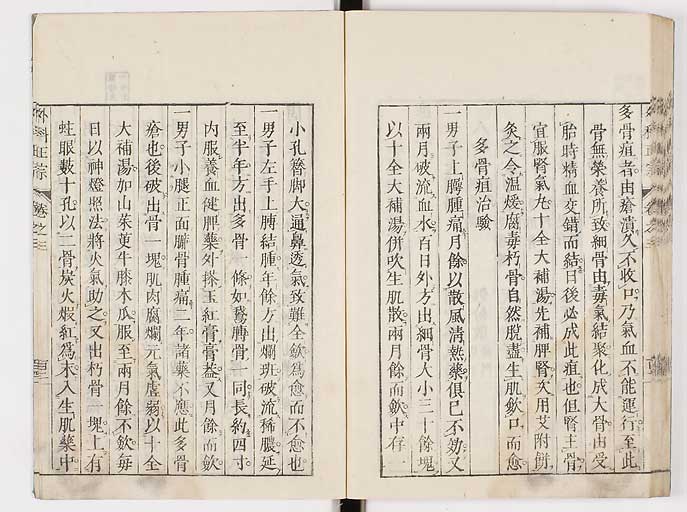 多骨疽者由瘡潰久不收口乃氣血不能運行至此
骨無榮養所致細骨由毒氣結聚化成大骨由受
胎時精血交錯而結日後必成此疽也但腎主骨
宜服腎氣丸十全大補湯先補脾腎次用艾附餅
灸之令溫煖腐毒朽骨自然脫盡生肌斂口而愈
多骨疽治驗
一男子上腭腫痛月餘以散風清熱藥俱已不効又
兩月破流血水百日外方出細骨大小三十餘塊
以十全大補湯併吹生肌散兩月餘而斂中存一
小孔簪脚大通鼻透氣致難全斂為愈而不愈也
一男子左手上膊結腫年餘方出爛斑破流稀膿延
至半年方出多骨一條如鷄膊骨一同長約四寸
內服養血健脾藥外搽玉紅膏膏葢又月餘而斂
一男子小腿正面臁骨腫痛二年諸藥不應此多骨
瘡也後破出骨一塊肌肉腐爛元氣虛弱以十全
大補湯加山茱萸牛膝木瓜服至兩月餘不斂每
日以神燈照法將火氣助之又出朽骨一塊上有
蛀眼數十孔以二骨炭火煅紅為末入生肌藥中
外科正宗
卷之三